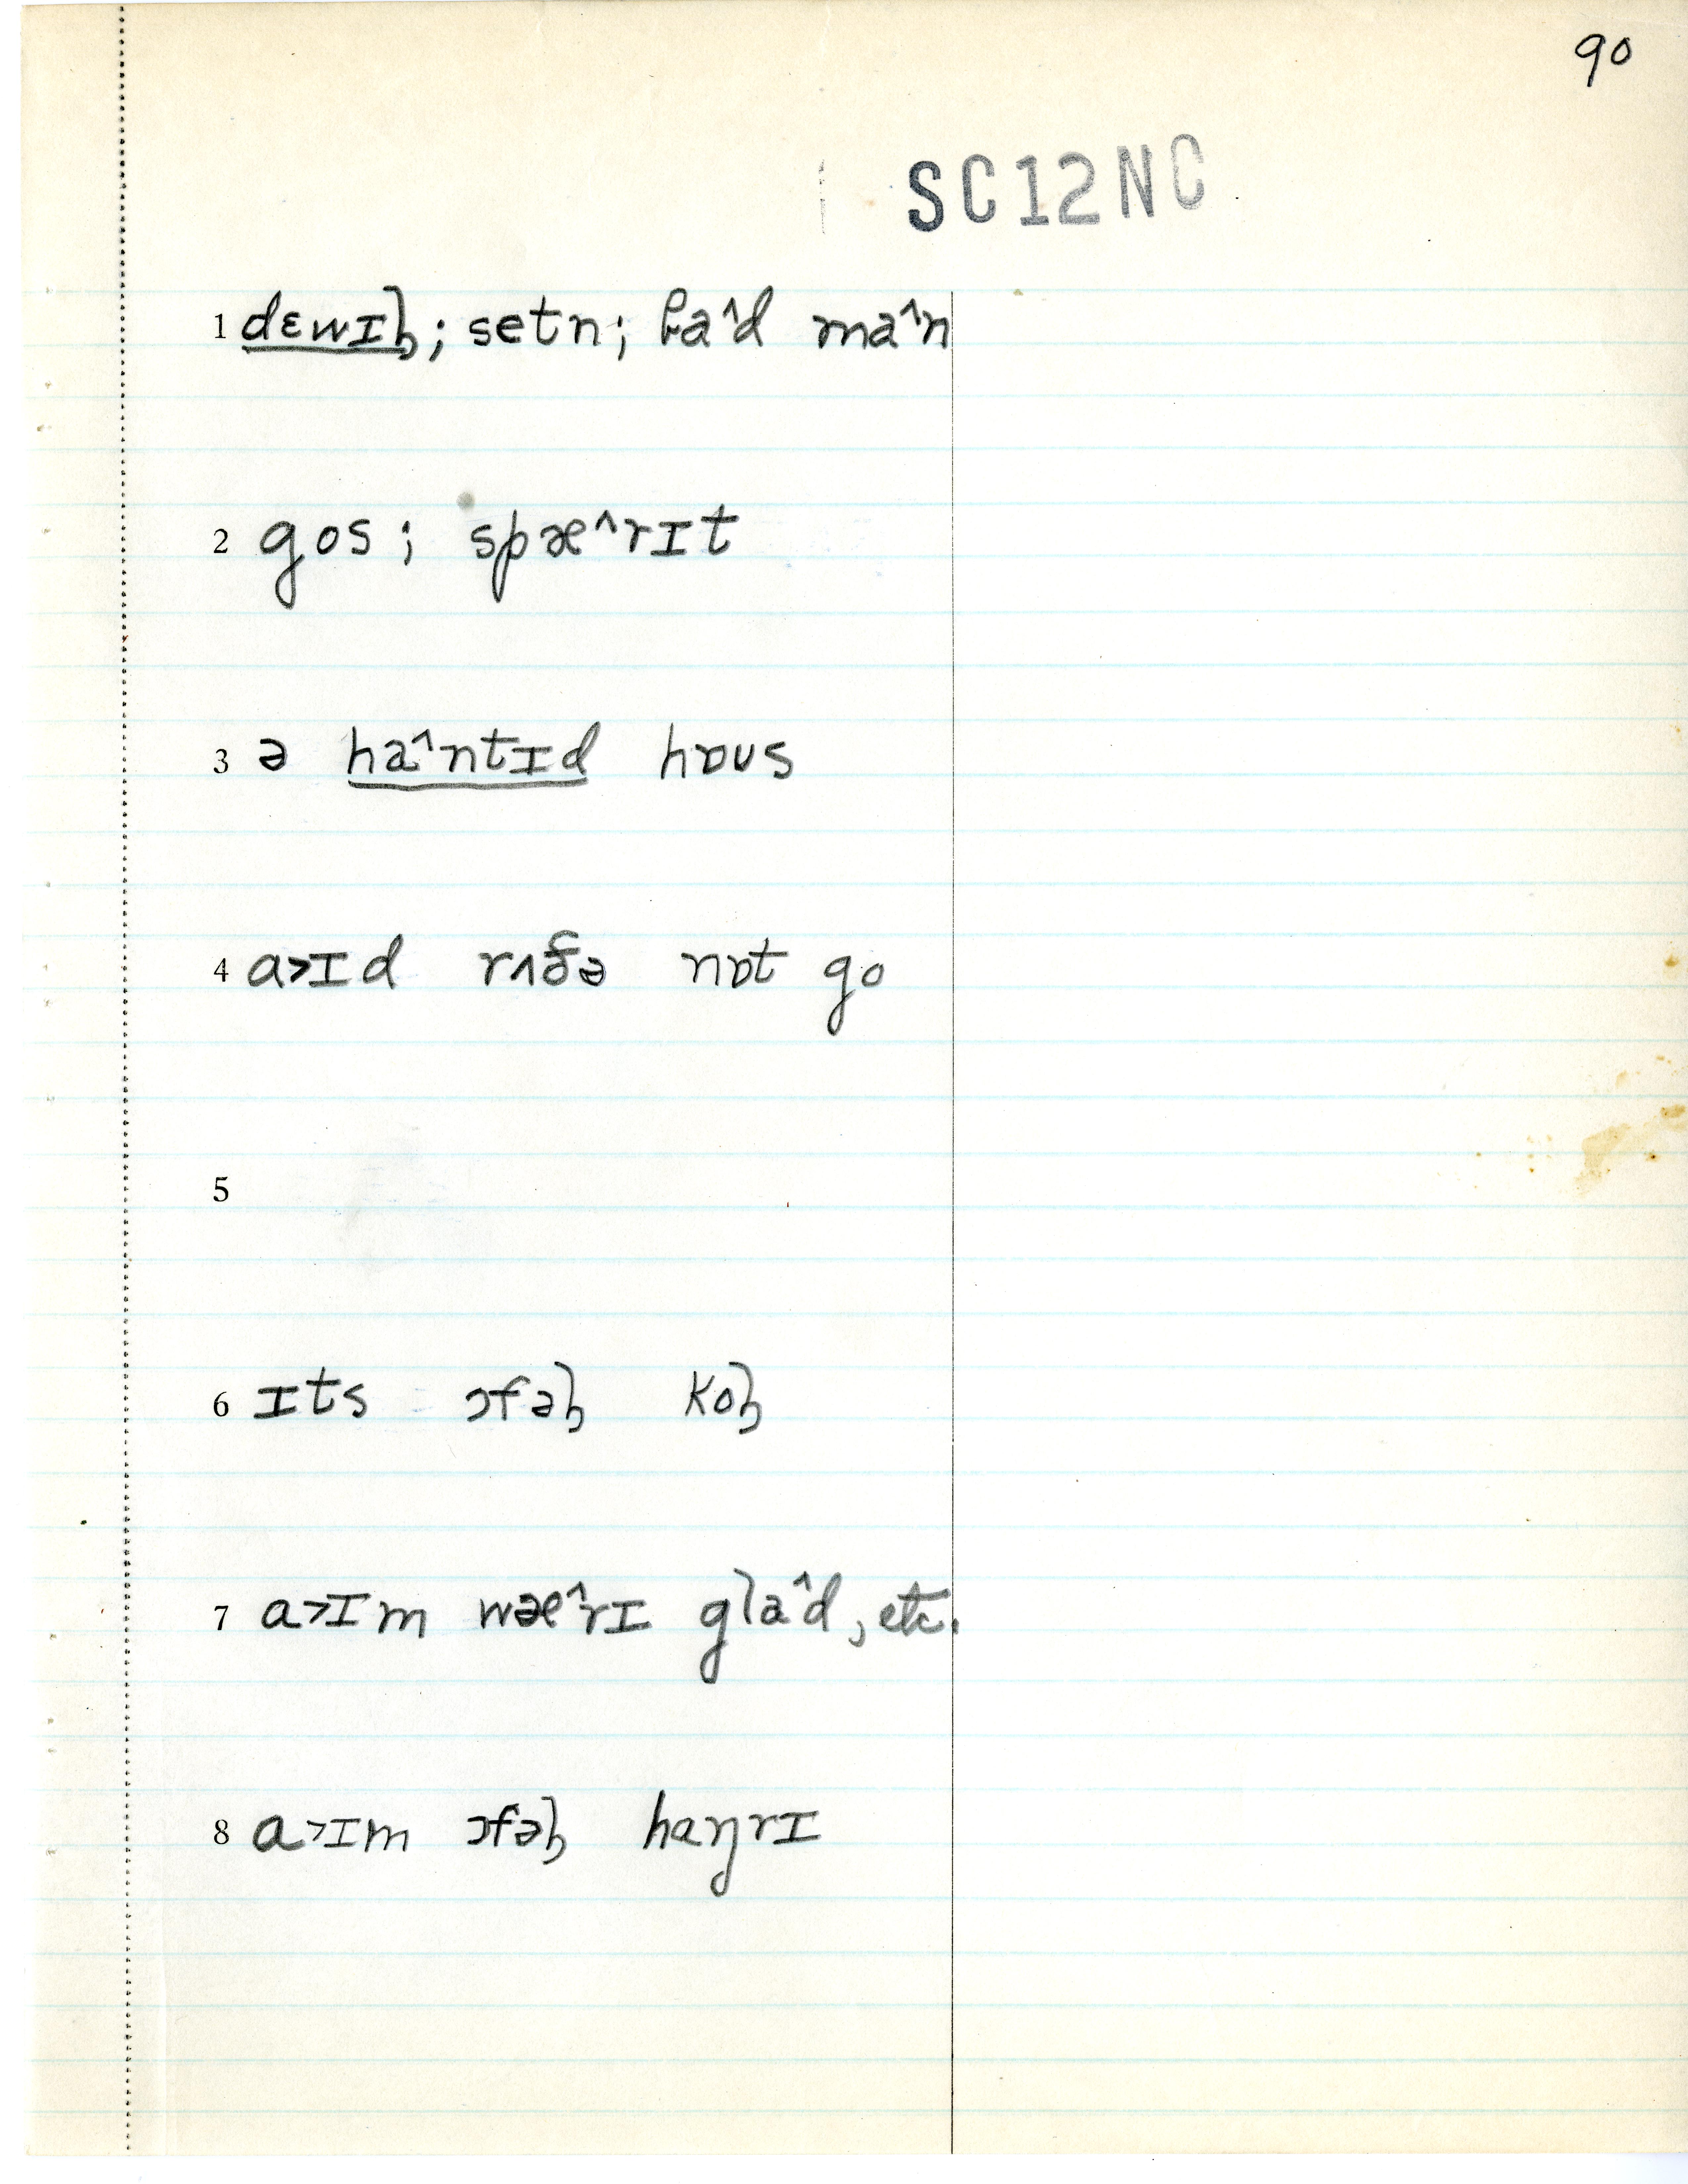 90
SC12NC
1 dɛwɪl̡; setn; ɓa^d ma^n
2 gos; spæ^rɪt
3 ə ha^ntɪd hɒus
4 a>ɪd rʌðə nɒt go
5
6 ɪts ɔfəl̡ kol̡
7 a>ɪm wæ^rɪ gla^d, etc.
8 a>ɪm ɔfəl̡ haŋrɪ